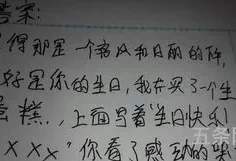 答案:
得那是一个格风和日丽的下午,
好是你的生日,我去买了一个生
蛋糕,上面写着"生日快乐
XXX"你看了感动的哭